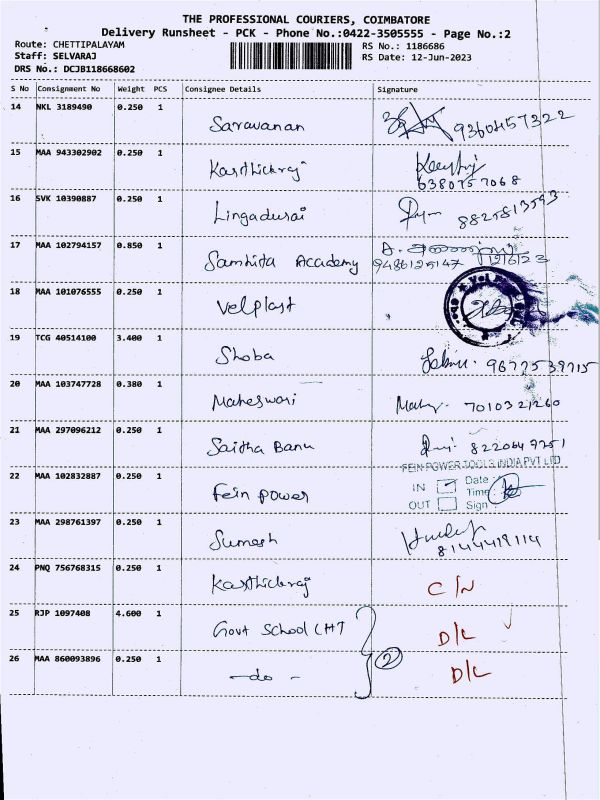 THE PROFESSIONAL COURIERS, COIMBATORE
Delivery Runsheet - PCK - Phone No.:0422-3505555 - Page No.:2
Route: CHETTIPALAYAM RS No.: 1186686
Staff: SELVARAJ RS Date: 12-Jun-2023
DRS No.: DCJB118668602
S No Consignment No Weight PCS Consignee Details Signature
14 NKL 3189490 0.250 1
Saravanan 9360457322
15 MAA 943302902 0.250 1
Karthickraj
6380757068
16 SVK 10390887 0.250 1
Lingadurai 8825813593
17 MAA 102794157 0.850 1
Samhita Academy 9486125147 12/6/23
18 MAA 101076555 0.250 1
Velplast
19 TCG 40514100 3.400 1
Shoba
20 MAA 103747728 0.380 1
Maheswari 7010321260
21 MAA 297096212 0.250 1
Saitha Banu
FEIN POWER TOOLS INDIA PVT LTD
22 MAA 102832887 0.250 1
IN Date
Fein power Time
OUT Sign
23 MAA 298761397 0.250 1
Sumesh
8144419114
24 PNQ 756768315 0.250 1
Karthickraj C/N
25 RJP 1097408 4.600 1
Govt School CHT D/L
26 MAA 860093896 0.250 1 2
-do- D/L